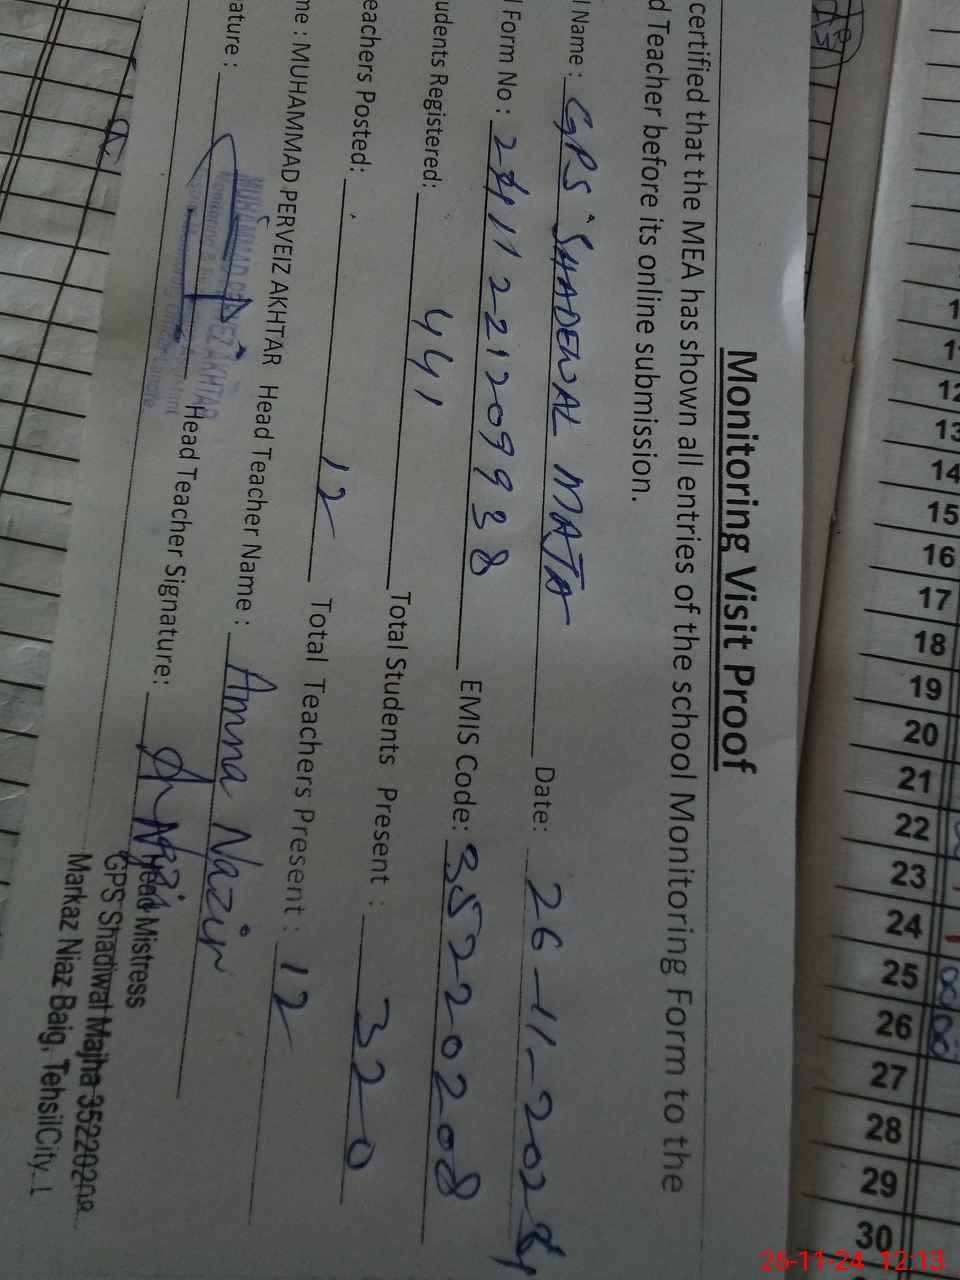 Monitoring Visit Proof
certified that the MEA has shown all entries of the school Monitoring Form to the
d Teacher before its online submission.
l Name : GPS SHADEWAL MATA Date: 26-11-2024
l Form No : 241122120 9938 EMIS Code: 35220208
udents Registered: 441 Total Students Present : 320
eachers Posted: 12 Total Teachers Present : 12
me : MUHAMMAD PERVEIZ AKHTAR Head Teacher Name : Amna Nazir
ature : Head Teacher Signature:
MUHAMMAD PERVEIZ AKHTAR
Head Mistress
GPS Shadiwal Majha 35220208
Markaz Niaz Baig, Tehsil City
12
13
14
15
16
17
18
19
20
21
22
23
24
25
26
27
28
29
30
26-11-24 12:13